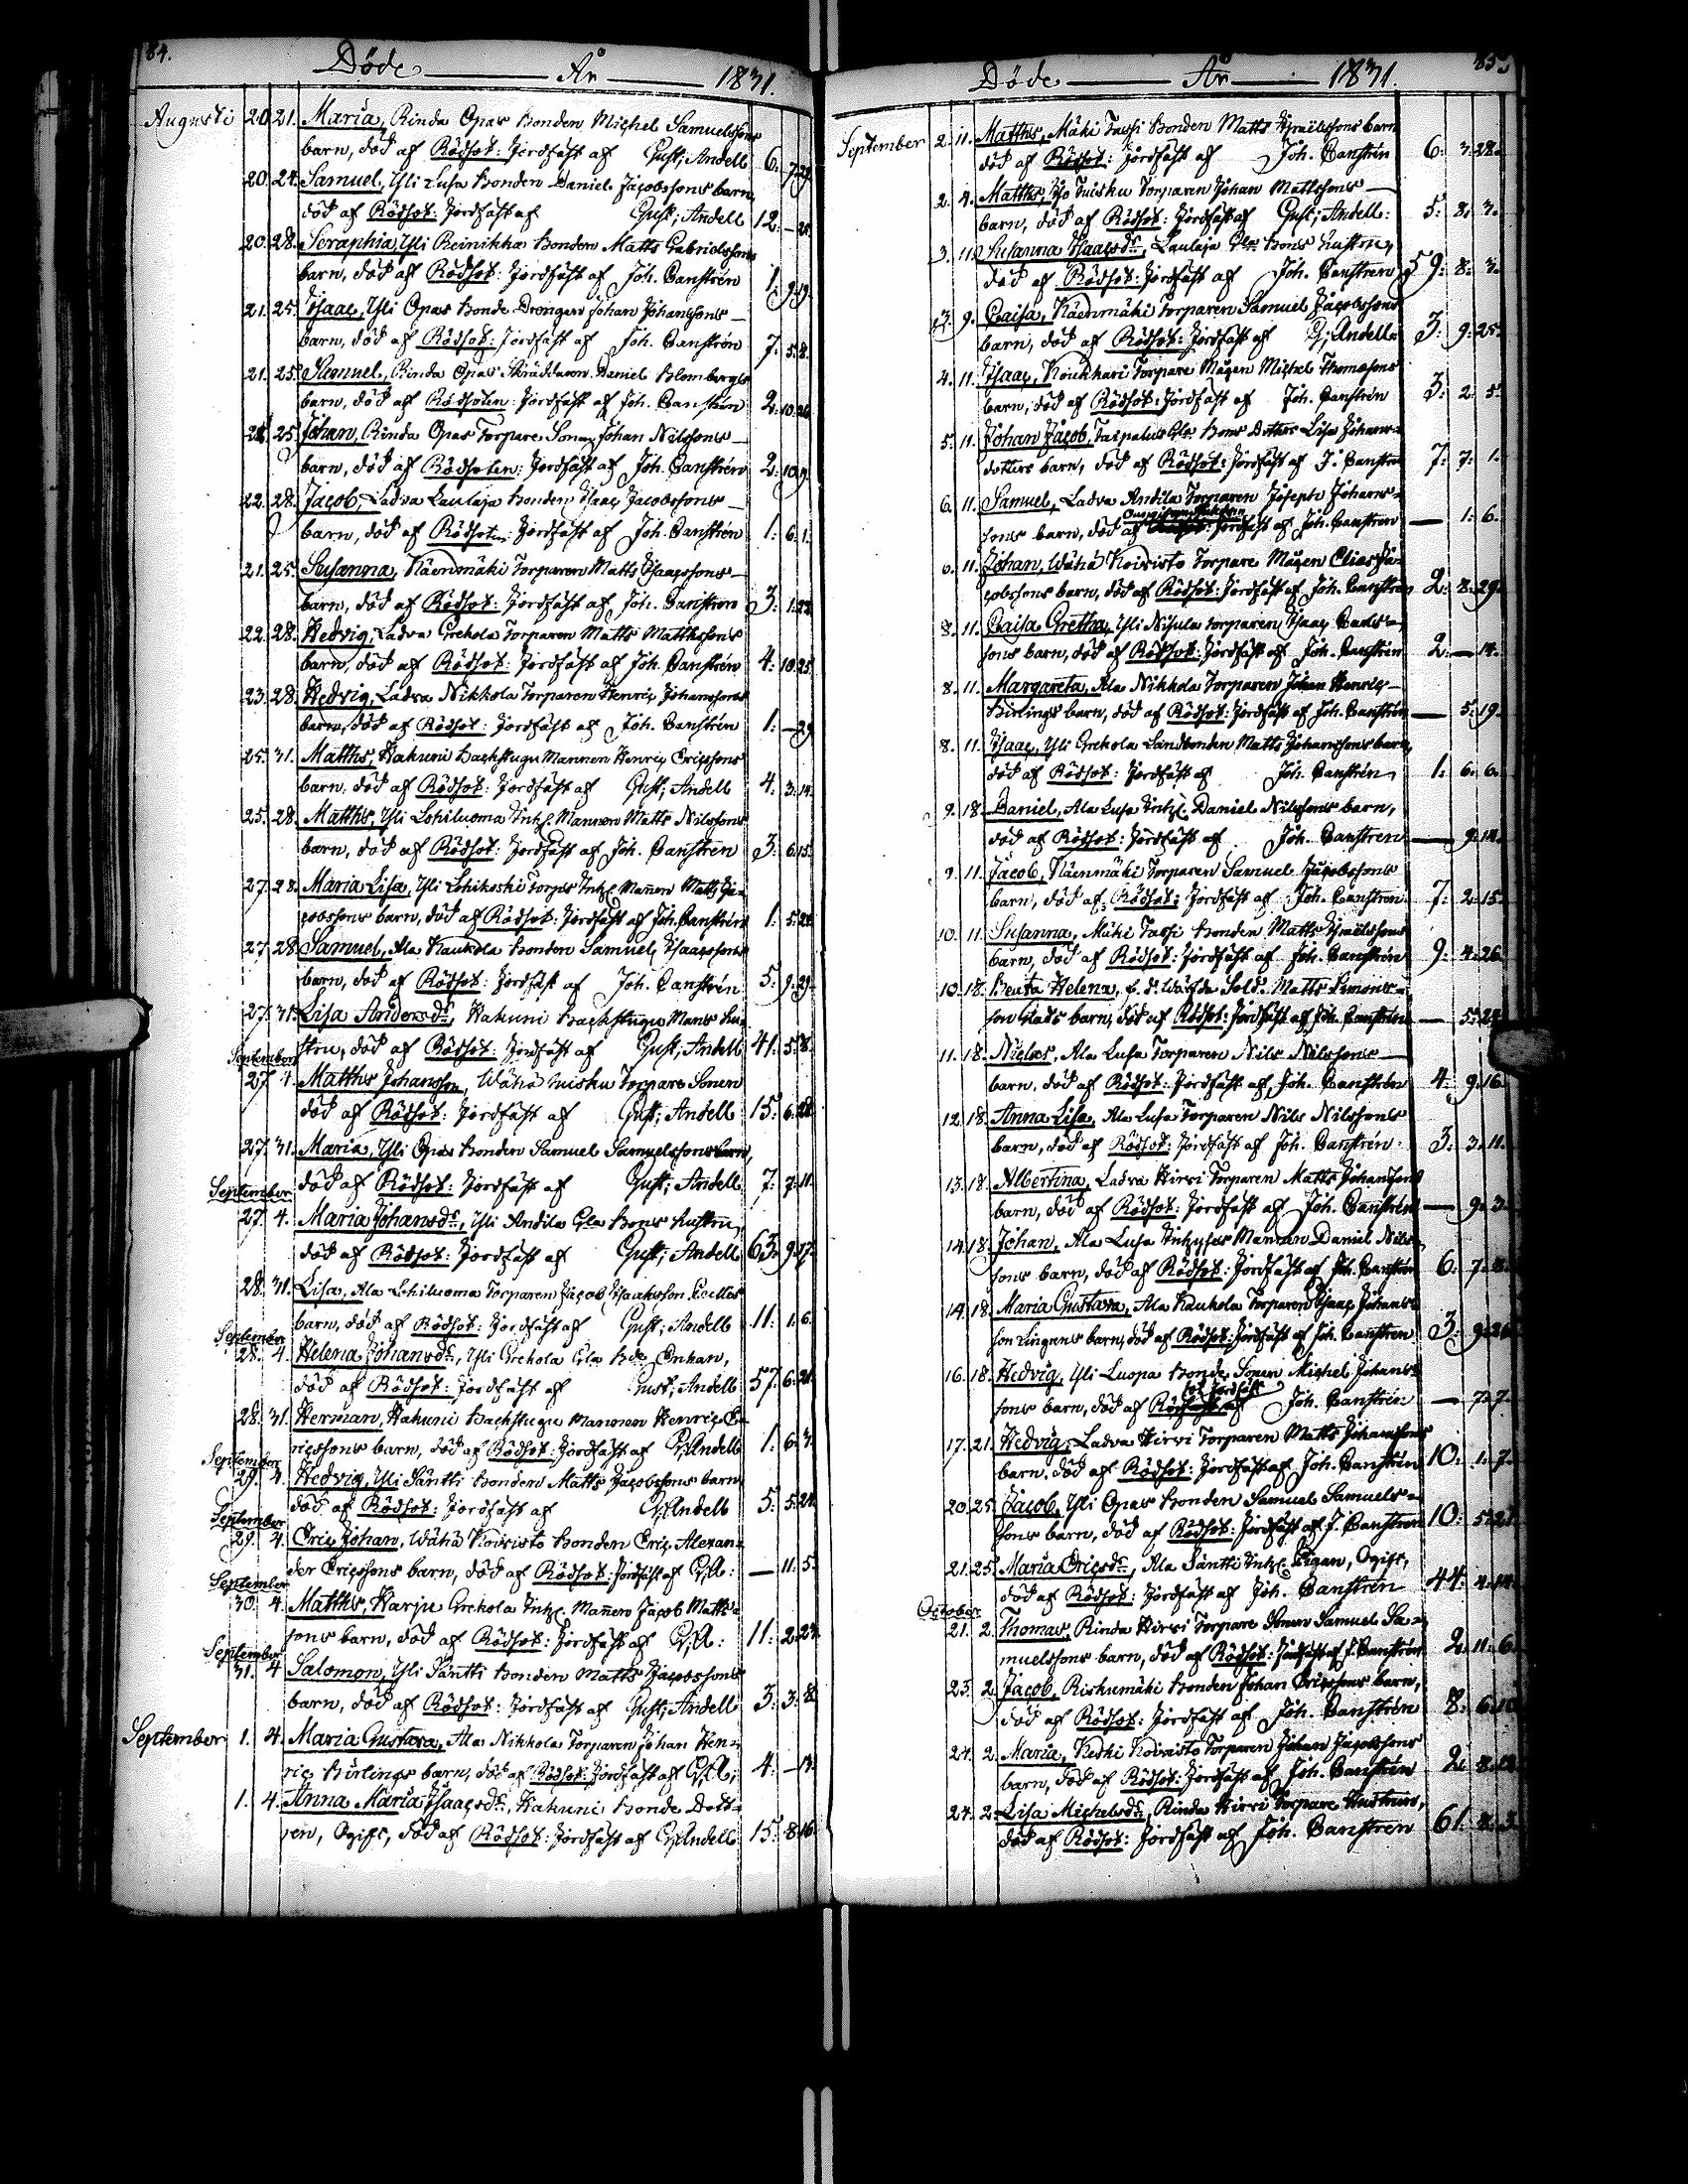 84.
Döde År 1831.
Augusti 20. 21. Maria, Rinda Opas bonden Michel Samuelssons
barn, död af Rödsot: Jordfäst af Gust; Andell 6. 7. 29.
20. 24. Samuel, Yli Lusa bonden Daniel Jacobssons barn,
död af Rödsot: Jordfäst af Gust; Andell 12. — 25.
20. 28. Seraphia, Yli Reinikka bonden Matts Gabrielssons
barn, död af Rödsot: Jordfäst af Joh. Canstrén 1. 9. 19.
21. 25. Isaac, Yli Opas bonde Drängen Johan Johanssons —
barn, död af Rödsot: Jordfäst af Joh. Canstrén 7. 5. 8.
21. 25. Samuel, Rinda Opas Skräddaren Daniel Blombergs
barn, död af Rödsoten: Jordfäst af Joh. Canstrén 2. 10. 26.
21. 25. Johan, Rinda Opas Torpare Sonen Johan Nilssons —
barn, död af Rödsoten: Jordfäst af Joh. Canstrén 2. 10. 9.
22. 28. Jacob, Ladva Laulaja bonden Isaac Jacobssons —
barn, död af Rödsoten: Jordfäst af Joh. Canstrén 1. 6. 1.
21. 25. Susanna, Näenmäki Torparen Matts Isaacssons —
barn, död af Rödsot: Jordfäst af Joh. Canstrén 3. 1. 22.
22. 28. Hedvig, Ladva Grekola Torparen Matts Matthssons
barn, död af Rödsot: Jordfäst af Joh. Canstrén 4. 10. 25.
23. 28. Hedvig, Ladva Nikkola Torparen Henric Johanssons
barn, död af Rödsot: Jordfäst af Joh. Canstrén 1. — 29.
25. 31. Matths, Hakuni Backstugu Mannen Henric Ericssons
barn, död af Rödsot: Jordfäst af Gust; Andell 4. 3. 14.
25. 28. Matths, Yli Lohiluoma Inh. Mannen Matts Nilssons
barn, död af Rödsot: Jordfäst af Joh. Canstrén 3. 6. 15.
27. 28. Maria Lisa, Yli Lohikoski Torps Inh. Mannen Matts Ja-
cobssons barn, död af Rödsot: Jordfäst af Joh. Canstrén 1. 5. 28.
27. 28. Samuel, Ala Kaukola bonden Samuel Isaacssons
barn, död af Rödsot: Jordfäst af Joh. Canstrén 5. 9. 29.
27. 31. Lisa Andersdr, Hakuni Backstugu Mans hu-
stru, död af Rödsot: Jordfäst af Gust; Andell 41. 5. 8.
September
27. 4. Matths Johansson, Wähä Tuisku Torpare Sonen
död af Rödsot: Jordfäst af Gust; Andell 15. 6. 28.
27. 31. Maria, Yli Opas bonden Samuel Samuelssons barn,
död af Rödsot: Jordfäst af Gust; Andell 7. 7. 11.
September
27. 4. Maria Johansdr, Yli Andila Gla bons hustru,
död af Rödsot: Jordfäst af Gust; Andell 63. 9. 17.
28. 31. Lisa, Ala Lohiluoma Torparen Jacob Isaacsson
barn, död af Rödsot: Jordfäst af Gust; Andell 11. 1. 6.
September
28. 4. Helena Johansdr, Yli Grekola Gla bde Enkan,
död af Rödsot: Jordfäst af Gust; Andell 57. 6. 21.
28. 31. Herman, Hakuni Backstugu Mannen Henric E-
ricssons barn, död af Rödsot: Jordfäst af G; Andell 1. 6. 3.
September
29. 4. Hedvig, Yli Säntti bonden Matts Jacobssons barn
död af Rödsot: Jordfäst af G; Andell 5. 5. 24.
September
29. 4. Eric Johan, Wähä Koivisto bonden Eric Alexan-
der Ericssons barn, död af Rödsot: Jordfäst af G; A: — 11. 5.
September
30. 4. Matths, Harju Grekola Inh. Mannen Jacob Matts-
sons barn, död af Rödsot: Jordfäst af G; A: 11. 2. 23.
September
31. 4 Salomon, Yli Säntti bonden Matts Jacobssons
barn, död af Rödsot: Jordfäst af Gust; Andell 3: 3. 8.
September 1. 4. Maria Gustava, Ala Nikkola Torparen Johan Hen-
ric Hirlings barn, död af Rödsot: Jordfäst af G; A; 4. — 14.
1. 4. Anna Maria Isaacsdr, Hakuni bonde Dott-
ren, Ogift, död af Rödsot: Jordfäst af G; Andell 15. 8. 16.
85.
Döde År 1831.
September 2. 11. Matths, Mäki Tassi bonden Matts Israelssons barn
död af Rödsot: Jordfäst af Joh. Canstrén 6: 3. 28.
2. 4. Matths, Iso Tuisku Torparen Johan Mattssons —
barn, död af Rödsot: Jordfäst af Gust; Andell: 5: 8. 3.
3. 11. Susanna Isaacsdr, Laulaja Gla bons hustru,
död af Rödsot: Jordfäst af Joh. Canstrén 59: 8. 3.
3. 9. Caisa, Näenmäki Torparen Samuel Jacobssons
barn, död af Rödsot: Jordfäst af G; Andell 3: 9. 25.
4. 11. Isaac, Koukkari Torpare Mågen Michel Thomassons
barn, död af Rödsot: Jordfäst af Joh. Canstrén 3: 2. 5.
5. 11. Johan Jacob, Taipalus Gla bons Dotter Lisa Johans-
dotters barn, död af Rödsot: Jordfäst af J: Canstrén 7: 7. 1.
6. 11. Samuel, Ladva Andila Torparen Joseph Johans-
sons barn, död af Jordfäst af Joh. Canstrén — 1. 6.
6. 11. Johan, Wähä Koivisto Torpare Mågen Elias Ja-
cobssons barn, död af Rödsot: Jordfäst af Joh. Canstrén 2: 8. 29.
8. 11. Caisa Gretha, Yli Nisula Torparen Isaac Carls-
sons barn, död af Rödsot: Jordfäst af Joh. Canstrén 2: — 14.
8. 11. Margareta, Ala Nikkola Torparen Johan Henric —
Hirlings barn, död af Rödsot: Jordfäst af Joh. Canstrén — 5. 19.
8. 11. Isaac, Yli Grekola Landbonden Matts Johanssons barn,
död af Rödsot: Jordfäst af Joh. Canstrén 1. 6. 6.
9. 18. Daniel, Ala Lusa Inh. Daniel Nilssons barn,
död af Rödsot: Jordfäst af Joh. Canstrén — 9. 14.
9. 11. Jacob, Näenmäki Torparen Samuel Jacobssons
barn, död af Rödsot: Jordfäst af Joh. Canstrén 7. 2. 15.
10. 11. Susanna, Mäki Tassi bonden Matts Israelssons
barn, död af Rödsot: Jordfäst af Joh. Canstrén 9: 4. 26.
10. 18. Beata Helena, f. d. Sold. Matts Simons-
son Glads barn, död af Rödsot: Jordfäst af Joh. Canstrén — 5. 24.
11. 18. Niclas, Ala Lusa Torparen Nils Nilssons —
barn, död af Rödsot: Jordfäst af Joh. Canstrén 4. 9. 16.
12. 18. Anna Lisa, Ala Lusa Torparen Nils Nilssons
barn, död af Rödsot: Jordfäst af Joh. Canstrén 3. 3. 11.
13. 18. Albertina, Ladva Hirvi Torparen Matts Johanssons
barn, död af Rödsot: Jordfäst af Joh. Canstrén — 9. 3.
14. 18. Johan, Ala Lusa Inhyses Mannen Daniel Nils-
sons barn, död af Rödsot: Jordfäst af Joh. Canstrén 6: 7. 8.
14. 18. Maria Gustava, Ala Kaukola Torparen Isaac Johans-
son Lingrens barn, död af Rödsot: Jordfäst af Joh. Canstrén 3. 9.
16. 18. Hedvig, Yli Luopa bonde Sonen Michel Johans-
sons barn, död af Rödsot Jordfäst af Joh. Canstrén — 7. 7.
17. 21. Hedvig, Ladva Hirvi Torparen Matts Johanssons
barn, död af Rödsot: Jordfäst af Joh. Canstrén 10. 1. 7.
20. 25. Jacob, Yli Opas bonden Samuel Samuels-
sons barn, död af Rödsot: Jordfäst af J. Canstrén 10: 5. 21.
21. 25. Maria Ericsdr, Ala Säntti Inh. Pigan, Ogift,
död af Rödsot: Jordfäst af Joh. Canstrén 44: 4. 14.
October
21. 2. Thomas, Rinda Hirvi Torpare Sonen Samuel Sa-
muelssons barn, död af Rödsot: Jordfäst af J. Canstrén 2. 11. 6.
23. 2. Jacob, Riskumäki bonden Johan Ericssons barn,
död af Rödsot: Jordfäst af Joh. Canstrén 8. 6. 10
24. 2. Maria, Keski Koivisto Torparen Johan Jacobssons
barn, död af Rödsot: Jordfäst af Joh. Canstrén 2. 8.
24. 2. Lisa Michelsdr, Rinda Hirvi Torpare Hustrun,
död af Rödsot: Jordfäst af Joh. Canstrén 61. 8. 3.